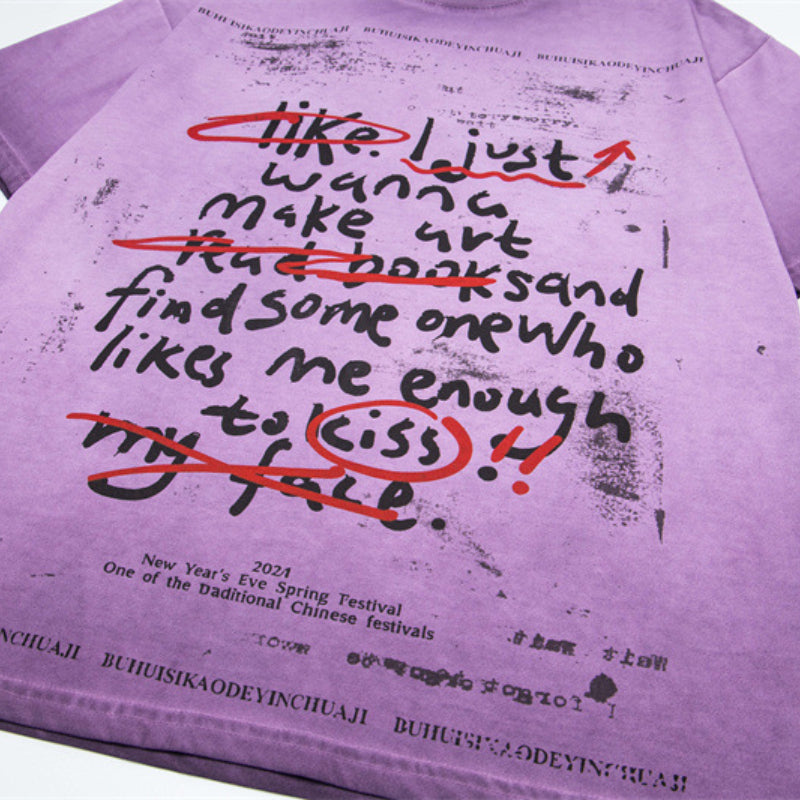 BUHUISIKAODEYINCHUAJI BUHUISIKAODEYINCHUAJI BUHUISIKAODEYINCHUAJI
like. I just
wanna
make art
Read books and
find some one who
likes me enough
to kiss !!
my face.
2021
New Year's Eve Spring Festival
One of the Daditional Chinese festivals
town
wait wait
I forgot
NCHUAJI BUHUISIKAODEYINCHUAJI BUHUISIKAODEYINCHUAJI